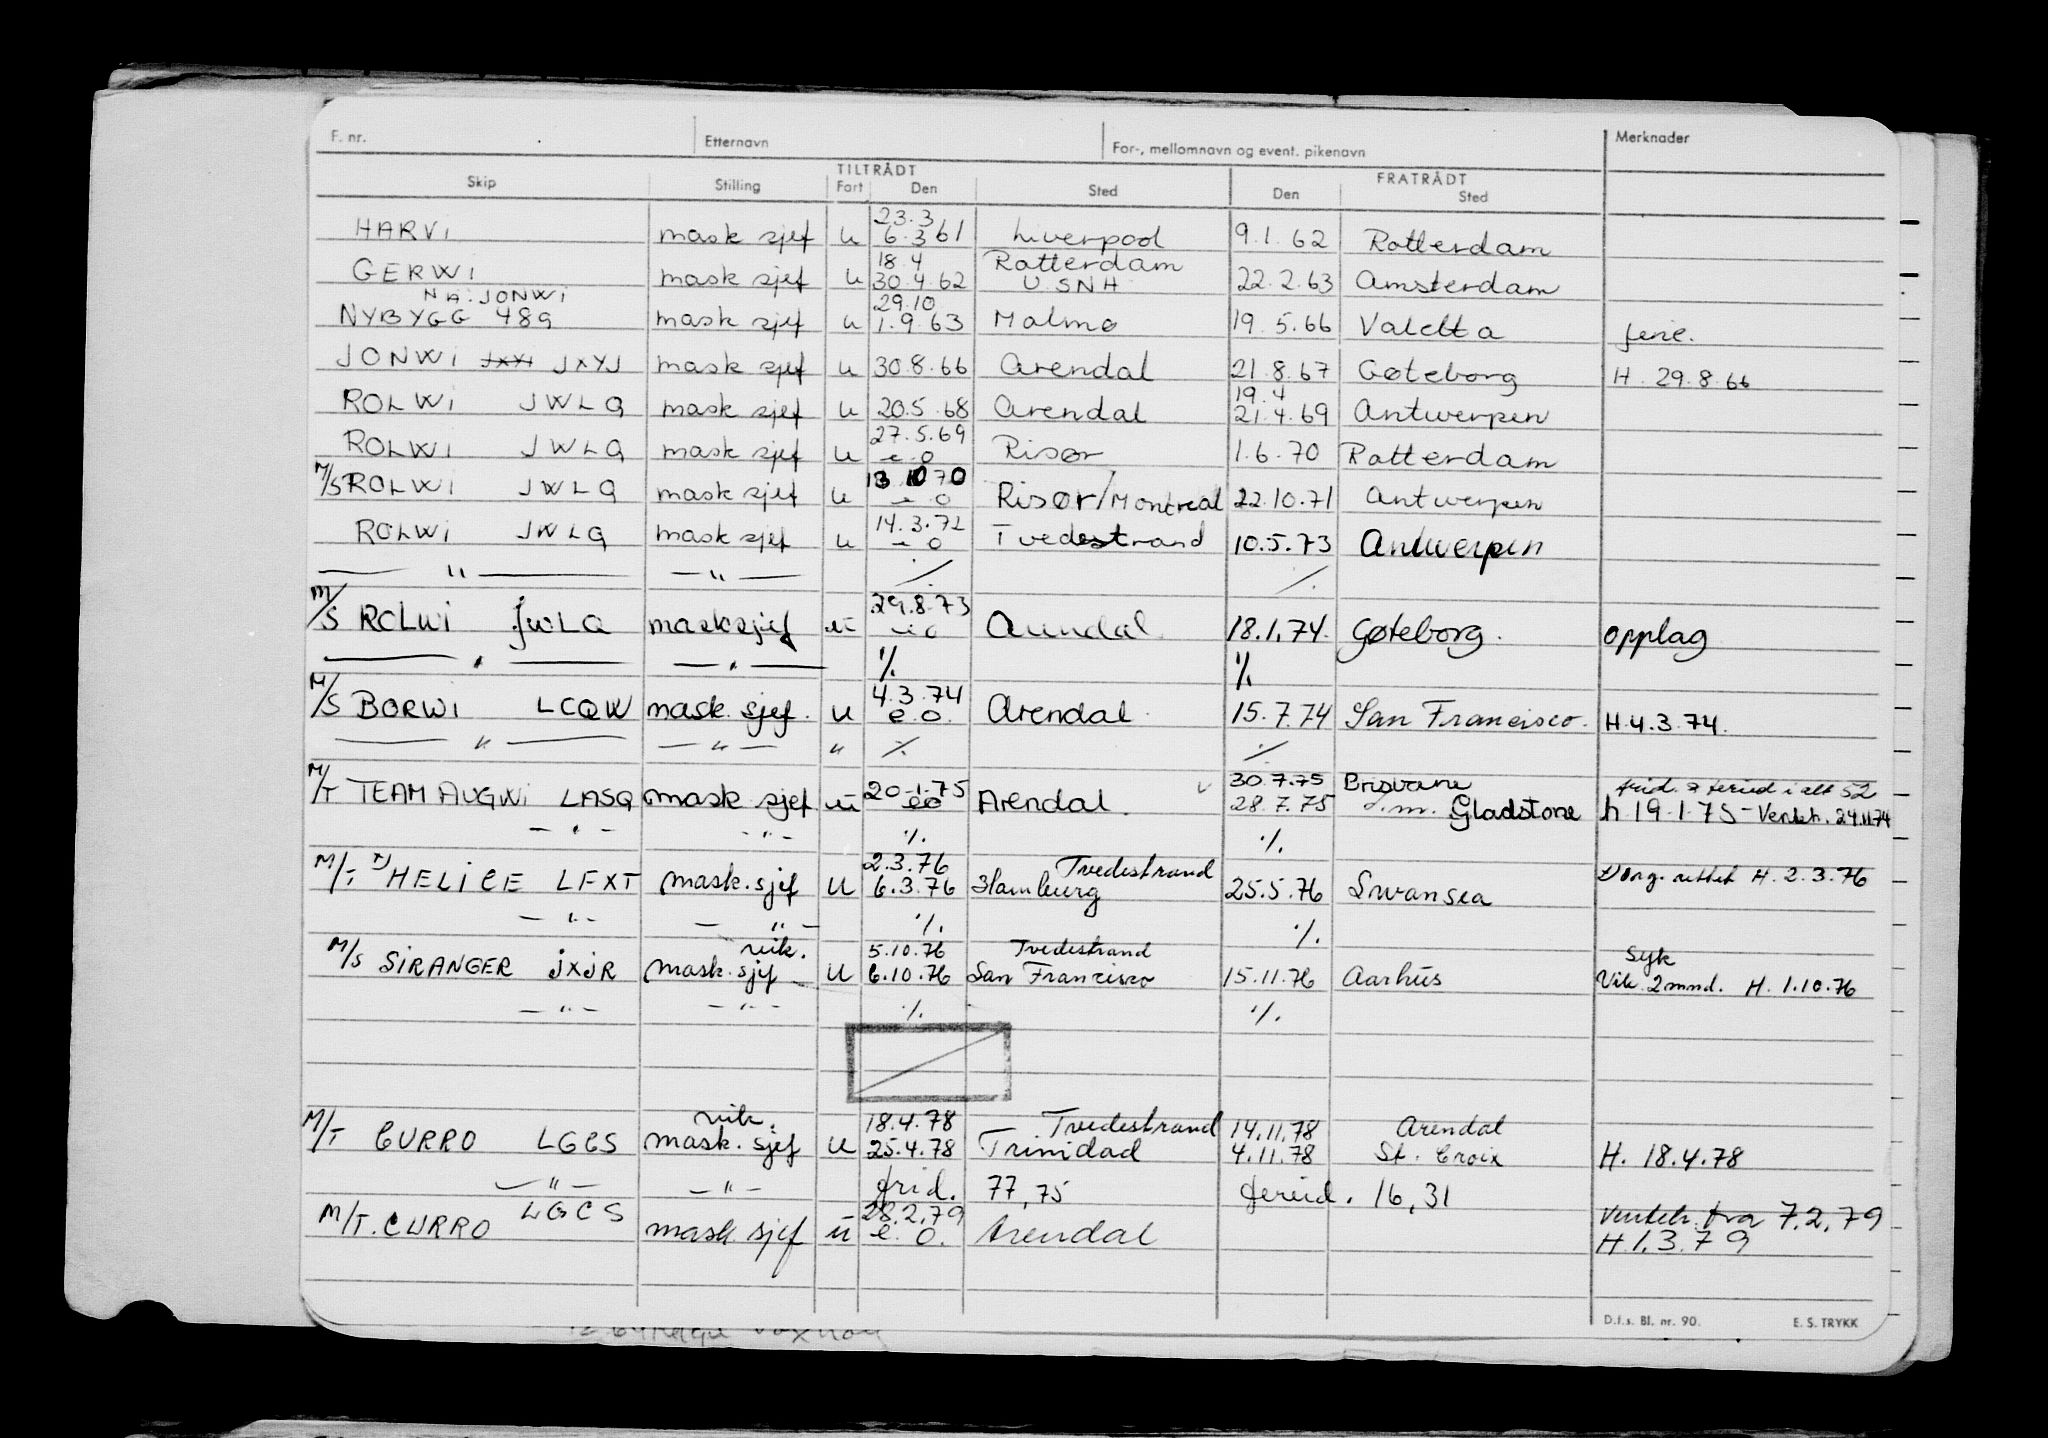 F. nr. Etternavn For-, mellomnavn og event. pikenavn Merknader
TILTRÅDT FRATRÅDT
Skip Stilling Fart Den Sted Den Sted
23.3
HARVI mask sjef u 6.3 61 Liverpool 9.1.62 Rotterdam
18.4 Rotterdam
GERWI mask sjef u 30.4.62 USNH 22.2.63 Amsterdam
NÅ: JONWI 29.10
NYBYGG 489 mask sjef u 1.9.63 Malmø 19.5.66 Valetta ferie.
JONWI JXYJ mask sjef u 30.8.66 Arendal 21.8.67 Gøteborg H. 29.8.66
19.4
ROLWI JWLQ mask sjef u 20.5.68 Arendal 21.4.69 Antwerpen
27.5.69
ROLWI JWLQ mask sjef u e.o Risør 1.6.70 Rotterdam
13 10 70
M/S ROLWI JWLQ mask sjef u e o Risør/Montreal 22.10.71 Antwerpen
14.3.72
ROLWI JWLQ mask sjef u e o Tvedestrand 10.5.73 Antwerpen
— " — — " — ./. ./.
29.8.73
M/S ROLWI JWLQ mask sjef u e o Arendal 18.1.74. Gøteborg. opplag
— " — — " — ./. ./.
4.3.74
M/S BORWI LCQW mask. sjef. u e.o. Arendal 15.7.74 San Francisco. H.4.3.74.
— " — — " — " ./. ./.
20.1.75 30.7.75 Brisbane frid. & feried i alt 52
M/T TEAM AUGWI LASQ mask sjef u eo Arendal 28.7.75 Gladstone h 19.1.75 - Ventet. 24.11.74
— " — — " — ./. ./.
2.3.76 Tvedestrand
M/T HELICE LFXT mask. sjef u 6.3.76 Hamburg 25.5.76 Swansea rettet H. 2.3.76
— " — — " — ./. ./.
vik. 5.10.76 Tvedestrand Syk
M/S SIRANGER JXJR mask. sjef u 6.10.76 San Francisco 15.11.76 Aarhus Vik 2 mnd. H. 1.10.76
— " — — " — ./. ./.
vik. 18.4.78 Tvedestrand 14.11.78 Arendal
M/T CURRO LGCS mask. sjef u 25.4.78 Trinidad 4.11.78 St. Croix H. 18.4.78
— " — — " — frid. 77,75 feried. 16,31
LGCS 28.2.79 Ventet fra 7.2.79
M/T. CURRO mask. sjef u e. o. Arendal H.1.3.79
D.f.s. Bl. nr. 90. E. S. TRYKK